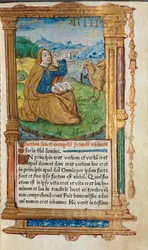 Initium sancti euangelii secundum Iohannem
Gloria tibi domine.
In principio erat verbum et verbū erat
apud deum et deus erat verbum: hoc erat
in principio apud deū Omnia per ipsum facta
sunt et sine ipso factum est nichil. Quod fact
est in ipso vita erat et vita erat lux homi
num et lux in tenebris lucet et tenebre eam
non comprehenderunt Fuit homo missus a deo
cui nomen erat iohannes Hic venit in testimo